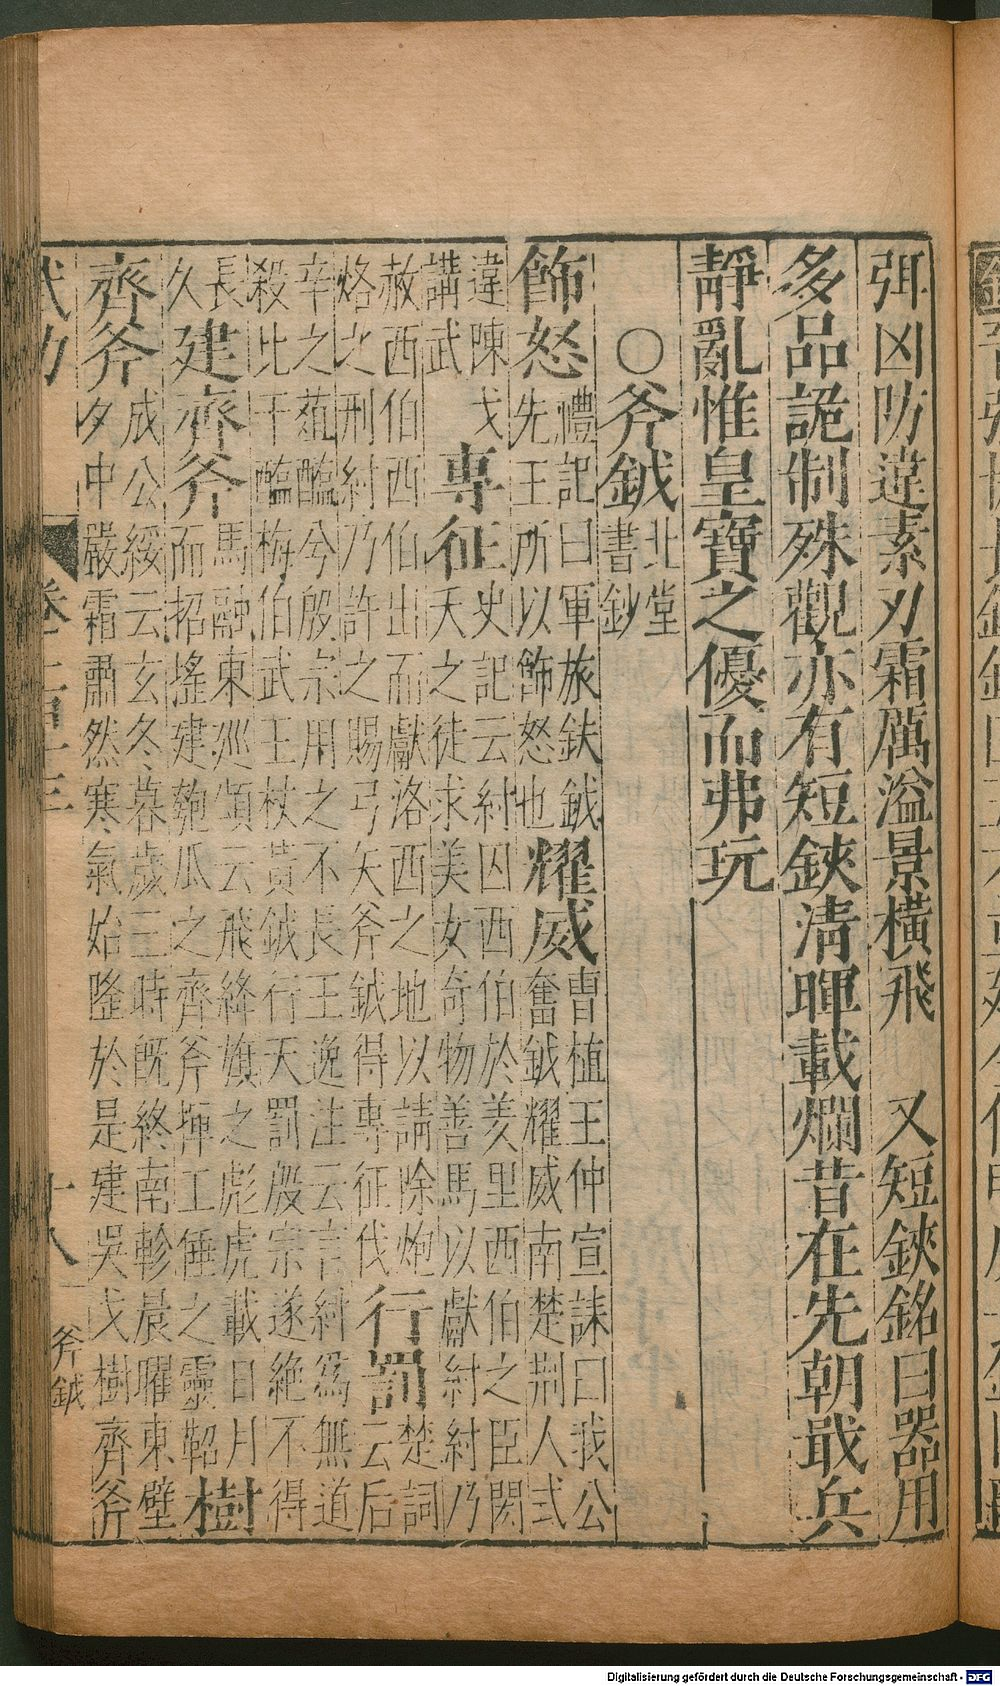 弭凶防違素刃霜厲溢景橫飛　又短鋏銘曰器用
多品詭制殊觀亦有短鋏淸暉載爛昔在先朝戢兵
靜亂惟皇寶之優而弗玩
○斧鉞北堂
書鈔
飾怒禮記曰軍旅鈇鉞
先王所以飾怒也耀威曹植王仲宣誄曰我公
奮鉞耀威南楚荆人或
違陳戈
講武　專征史記云紂囚西伯於羑里西伯之臣閎
夭之徒求美女奇物善馬以獻紂紂乃
赦西伯西伯出而獻洛西之地以請除炮
烙之刑紂乃許之賜弓矢斧鉞得專征伐行罰楚詞
云后
辛之菹醢兮殷宗用之不長王逸注云言紂爲無道
殺比干醢梅伯武王杖黃鉞行天罰殷宗遂絶不得
長
久建齊斧馬融東巡頌云飛絳旗之彪虎載日月
而招搖建匏瓜之齊斧揮工倕之靈鞀樹
齊斧成公綏云玄冬暮歲三時旣終南軫晨曜東壁
夕中嚴霜肅然寒氣始隆於是建吳戈樹齊斧
武功
十八
斧鉞
Digitalisierung gefördert durch die Deutsche Forschungsgemeinschaft - DFG